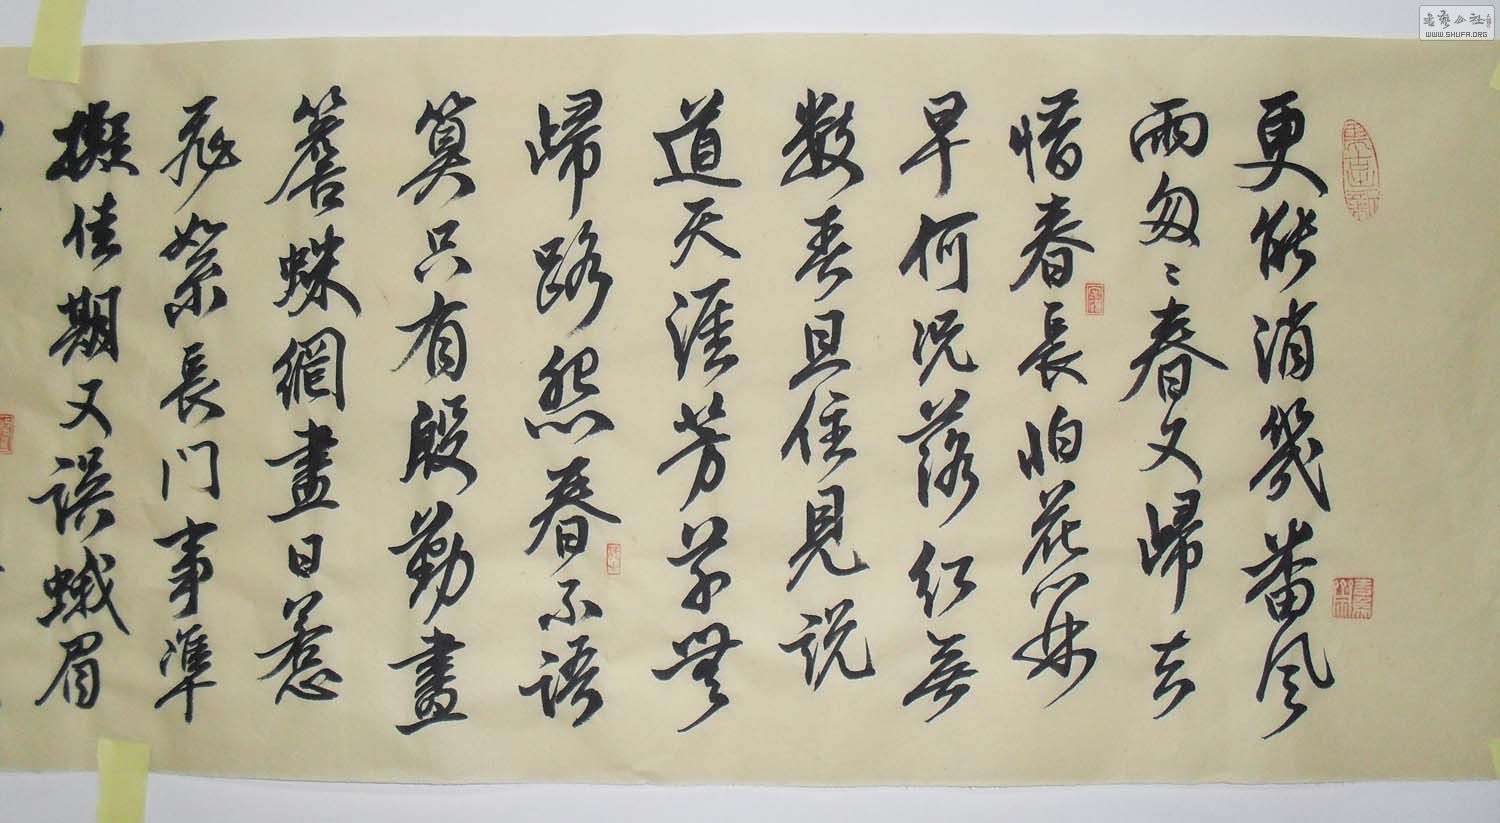 更能消幾番風
雨匆〻春又歸去
惜春長怕花開
早何況落紅無
數春且住見說
道天涯芳草無
歸路怨春不語
算只有殷勤畫
簷蛛網盡日惹
飛絮長門事準
擬佳期又誤蛾眉
书艺公社
WWW.SHUFA.ORG